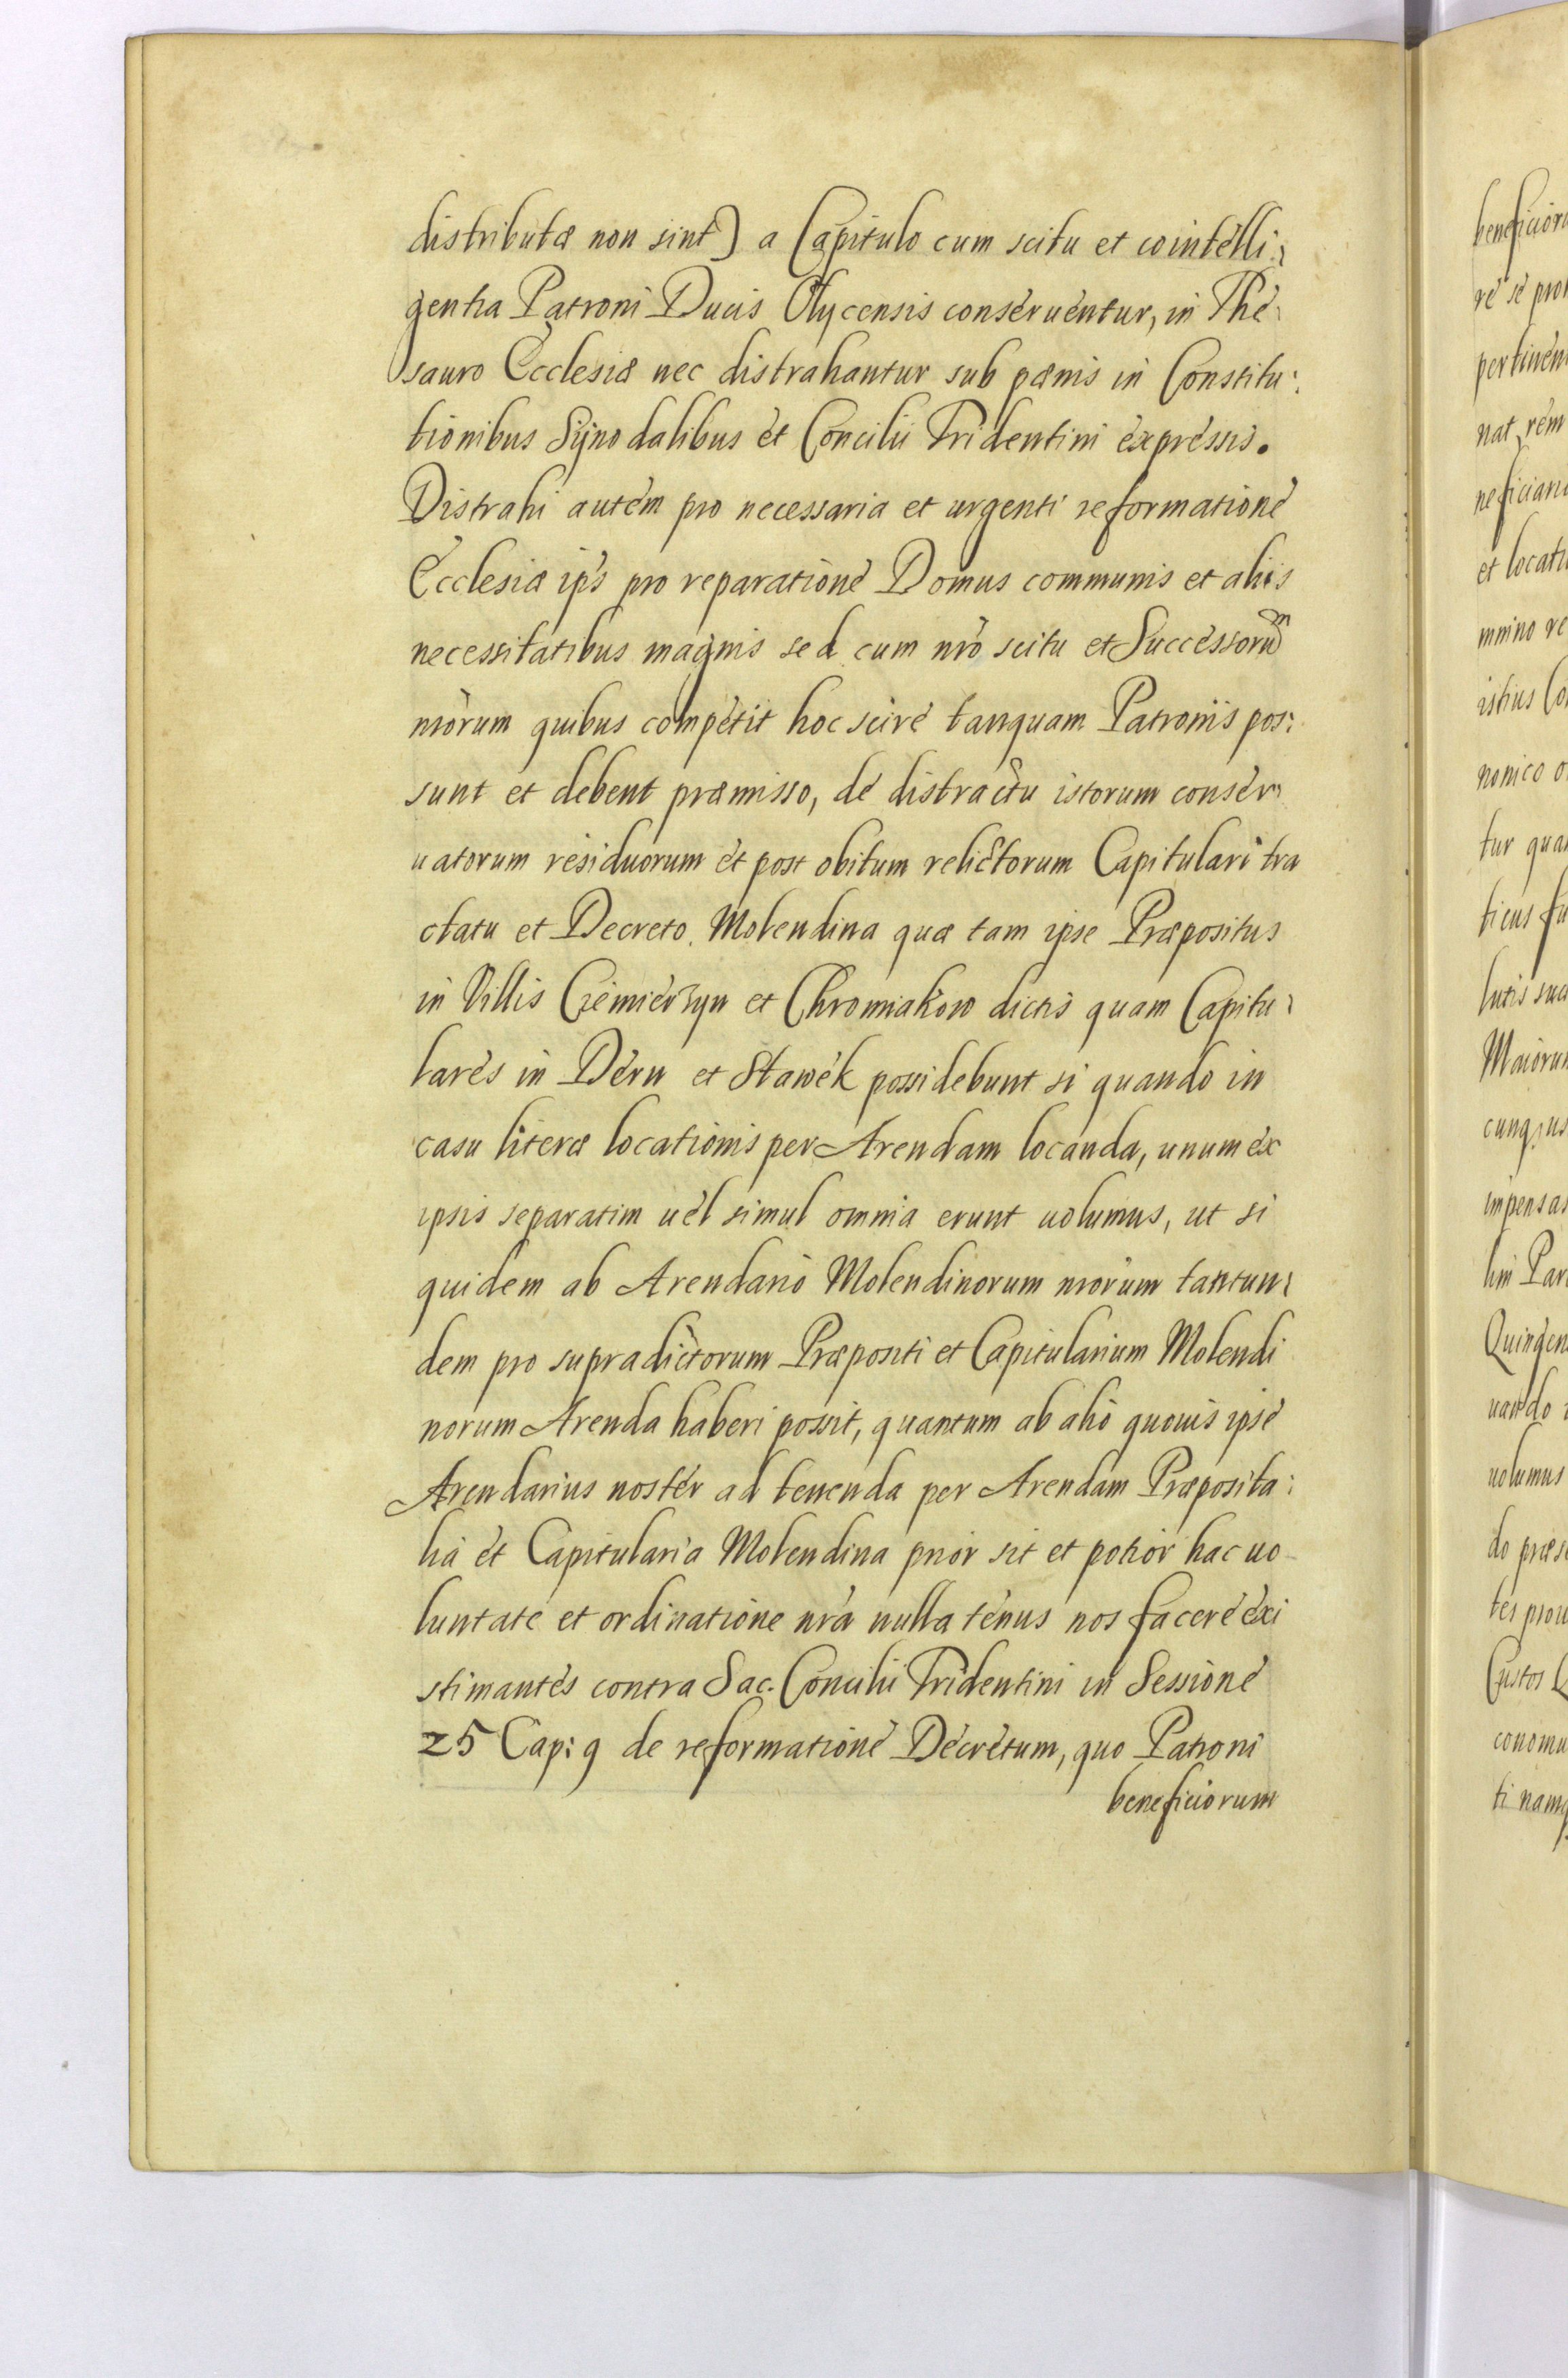 distributæ non sint) a Capitulo cum scitu et cointelli:
gentia Patroni Ducis Olycensis conseruentur, in The
sauro Ecclesiæ nec distrahantur sub pænis in Constitu:
tionibus Synodalibus et Concilii Tridentini expressis.
Distrahi autem pro necessaria et urgenti reformatione
Ecclesiæ ips pro reparatione Domus communis et aliis
necessitatibus magnis sed cum nro scitu et Successorum
nrorum quibus competit hoc scire tanquam Patronis pos:
sunt et debent præmisso, de distractu istorum conser
uatorum residuorum et post obitum relictorum Capitulari tra
ctatu et Decreto. Molendina quæ tam ipse Præpositus
in Villis Czemierzyn et Chromiakow dictis quam Capitu:
lares in Dern et Stawek possidebunt si quando in
casu literæ locationis per Arendam locanda, unum ex
ipsis separatim uel simul omnia erunt uolumus, ut si
quidem ab Arendario Molendinorum nrorum tantun:
dem pro supradictorum Præpositi et Capitularium Molendi
norum Arenda haberi possit, quantum ab alio quouis ipse
Arendarius noster ad tenenda per Arendam Præposita:
lia et Capitularia Molendina prior sit et potior hac uo
luntate et ordinatione nra nulla tenus nos facere exi
stimantes contra Sac. Concilii Tridentini in Sessione
25 Cap: 9 de reformatione Decretum, quo Patroni
beneficiorum